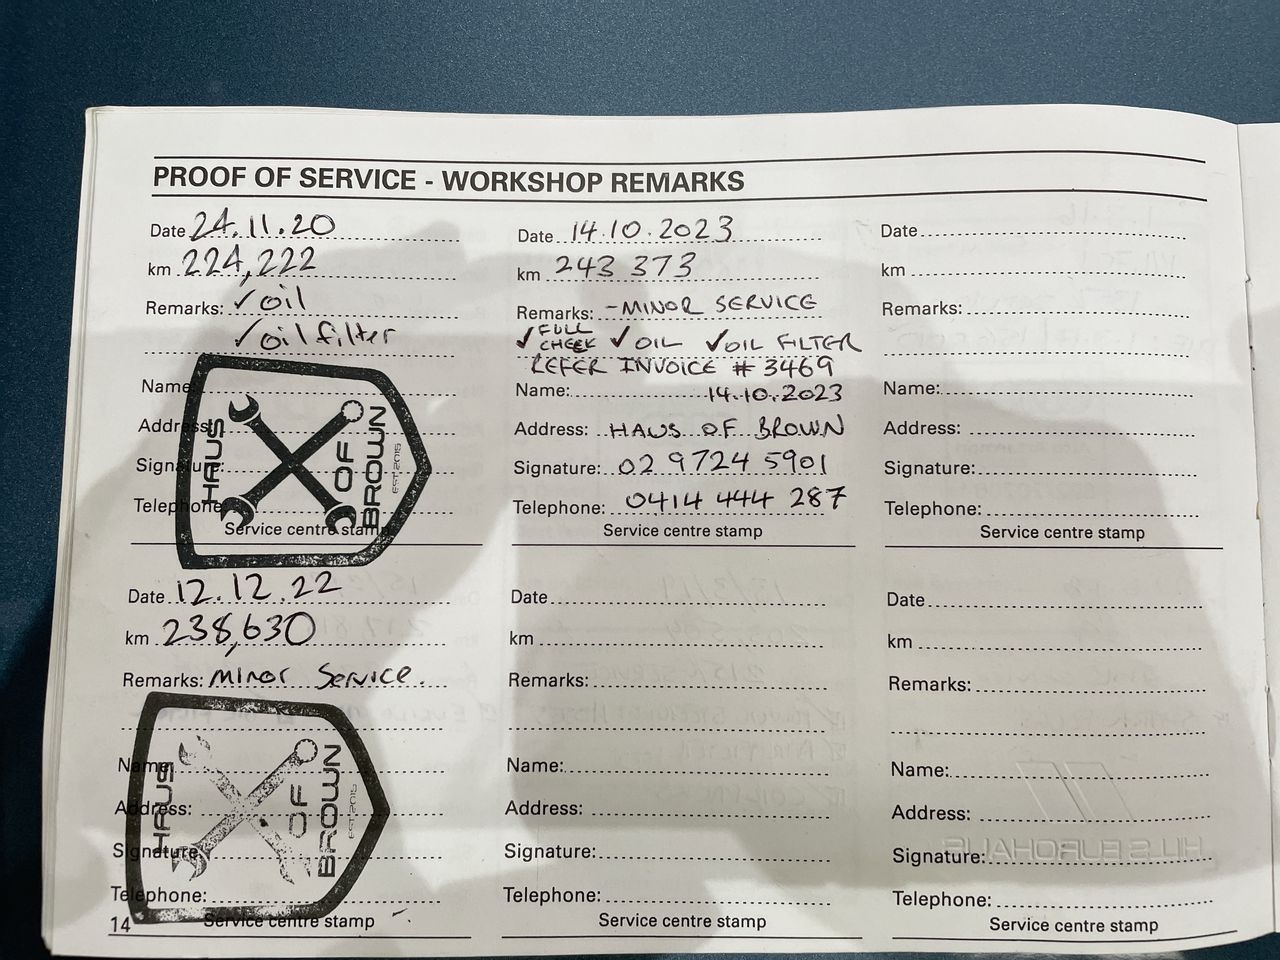 PROOF OF SERVICE - WORKSHOP REMARKS
Date 24.11.20
km 224,222
Remarks: ✓ oil
✓ oil filter
Name:
Address:
Signature:
Telephone:
HAUS OF BROWN EST 2015
Service centre stamp
Date 14.10.2023
km 243 373
Remarks: - MINOR SERVICE
✓ FULL CHECK ✓ OIL ✓ OIL FILTER
REFER INVOICE # 3469
Name: 14.10.2023
Address: HAUS OF BROWN
Signature: 02 9724 5901
Telephone: 0414 444 287
Service centre stamp
Date
km
Remarks:
Name:
Address:
Signature:
Telephone:
Service centre stamp
Date 12.12.22
km 238,630
Remarks: Minor Service.
Name:
Address:
Signature:
Telephone:
HAUS OF BROWN EST 2015
Service centre stamp
Date
km
Remarks:
Name:
Address:
Signature:
Telephone:
Service centre stamp
Date
km
Remarks:
Name:
Address:
Signature:
Telephone:
Service centre stamp
14